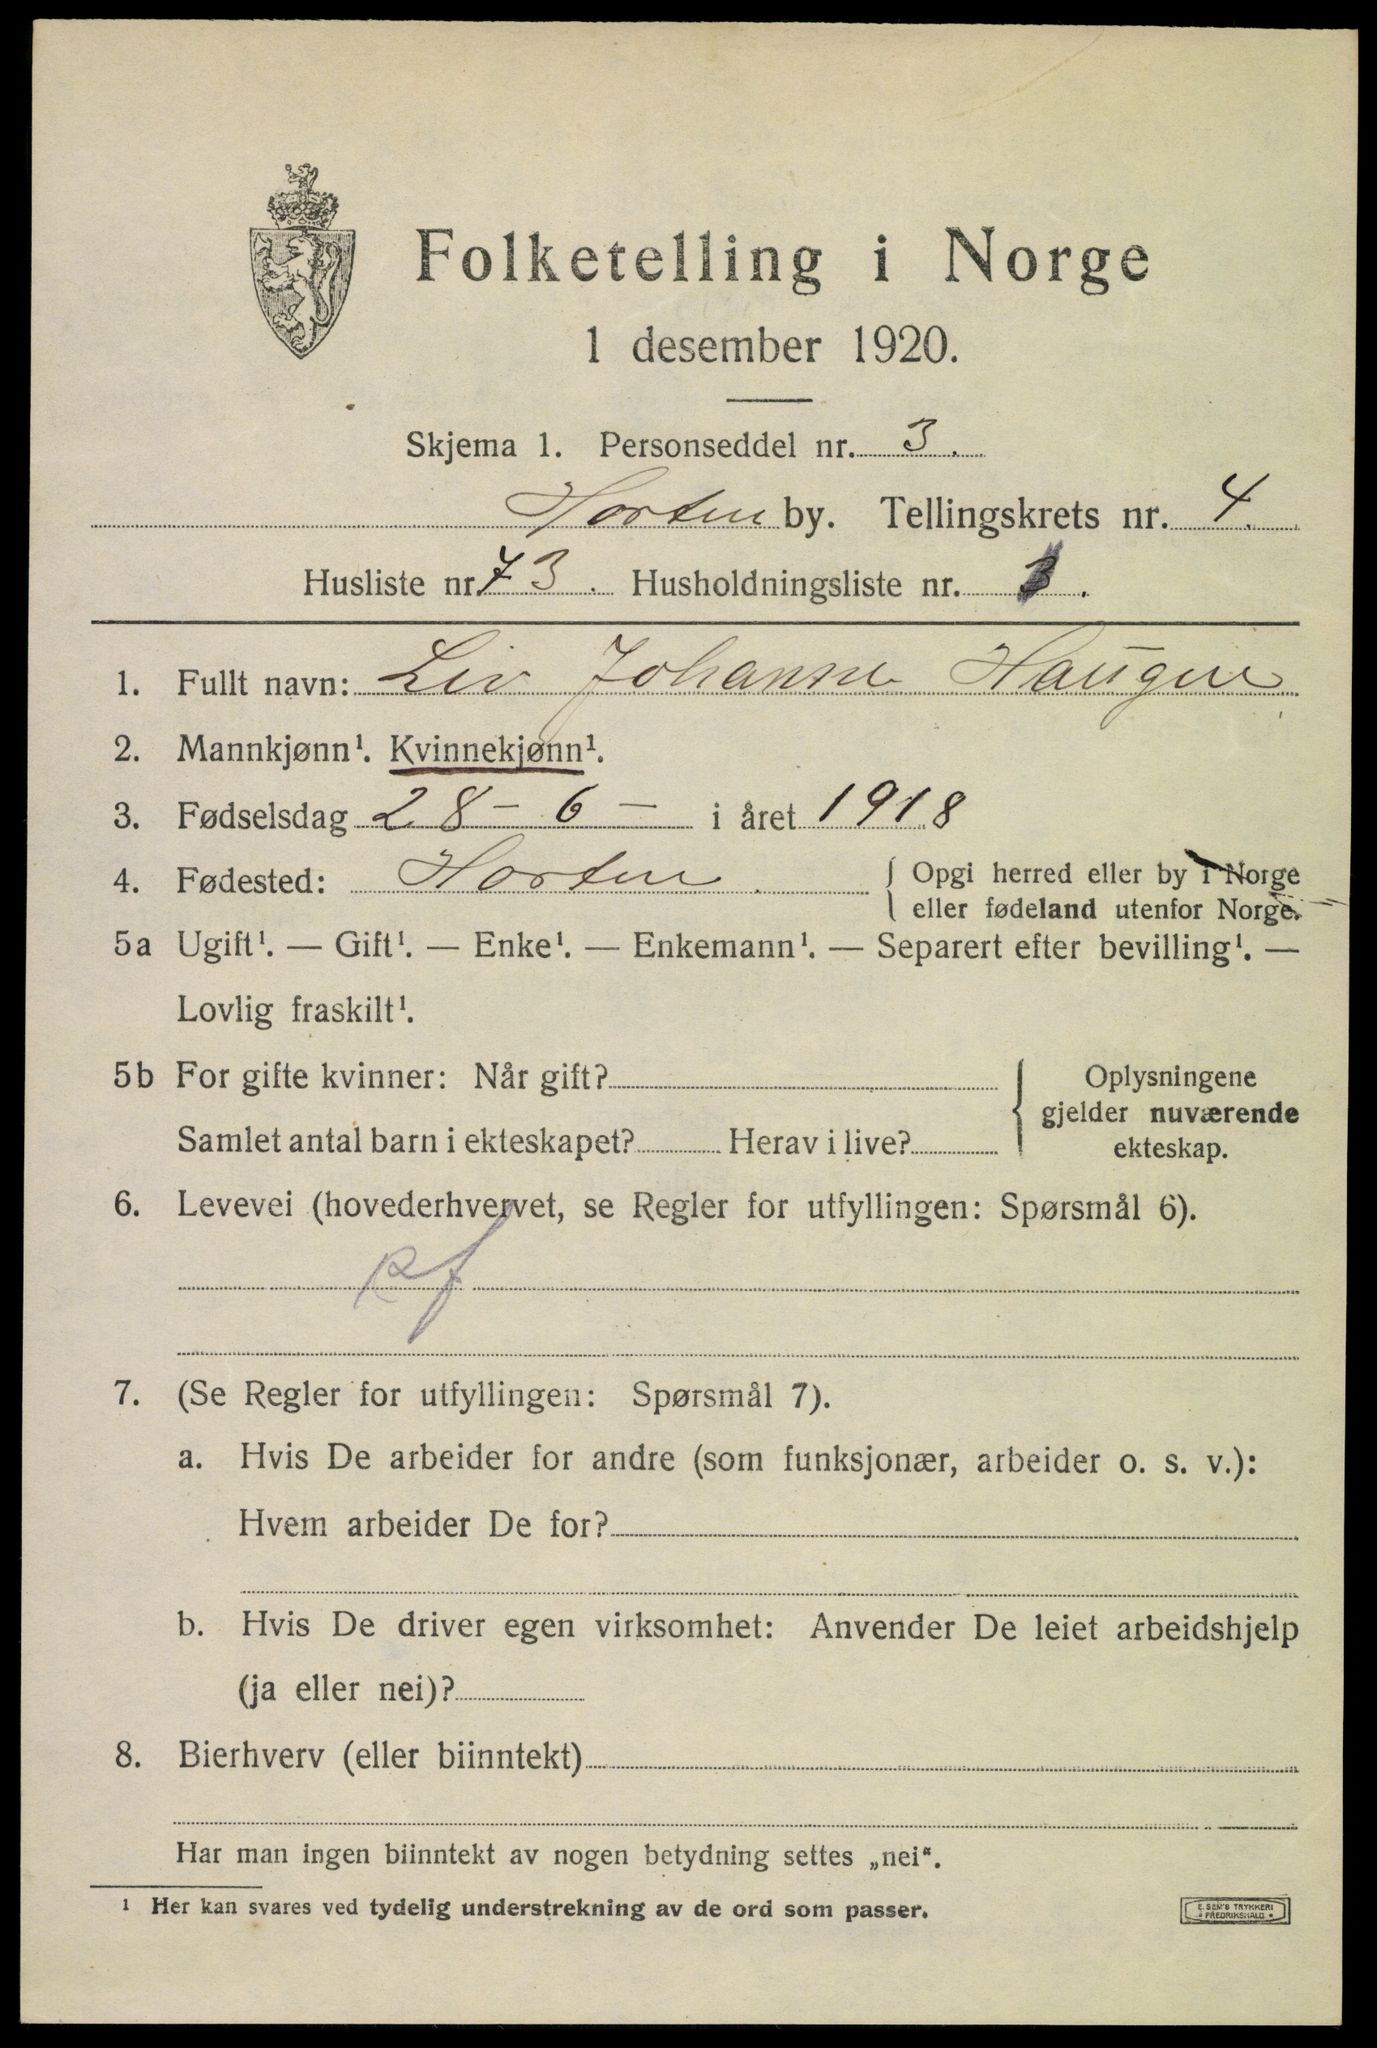 Folketelling i Norge
1 desember 1920.
Skjema 1. Personseddel nr. 3.
Horten by. Tellingskrets nr. 4.
Husliste nr. 73. Husholdningsliste nr. .
1. Fullt navn: Liv Johanne Haugen
2. Mannkjønn¹. Kvinnekjønn¹.
3. Fødselsdag 28 – 6 – i året 1918
4. Fødested: Horten. { Opgi herred eller by i Norge
eller fødeland utenfor Norge.
5a Ugift¹. — Gift¹. — Enke¹. — Enkemann¹. — Separert efter bevilling¹. —
Lovlig fraskilt¹.
5b For gifte kvinner: Når gift? { Oplysningene
gjelder nuværende
Samlet antal barn i ekteskapet? Herav i live? ekteskap.
6. Levevei (hovederhvervet, se Regler for utfyllingen: Spørsmål 6).
7. (Se Regler for utfyllingen: Spørsmål 7).
a. Hvis De arbeider for andre (som funksjonær, arbeider o. s. v.):
Hvem arbeider De for?
b. Hvis De driver egen virksomhet: Anvender De leiet arbeidshjelp
(ja eller nei)?
8. Bierhverv (eller biinntekt)
Har man ingen biinntekt av nogen betydning settes „nei“.
¹ Her kan svares ved tydelig understrekning av de ord som passer.
E. SEM'S TRYKKERI
FREDRIKSHALD